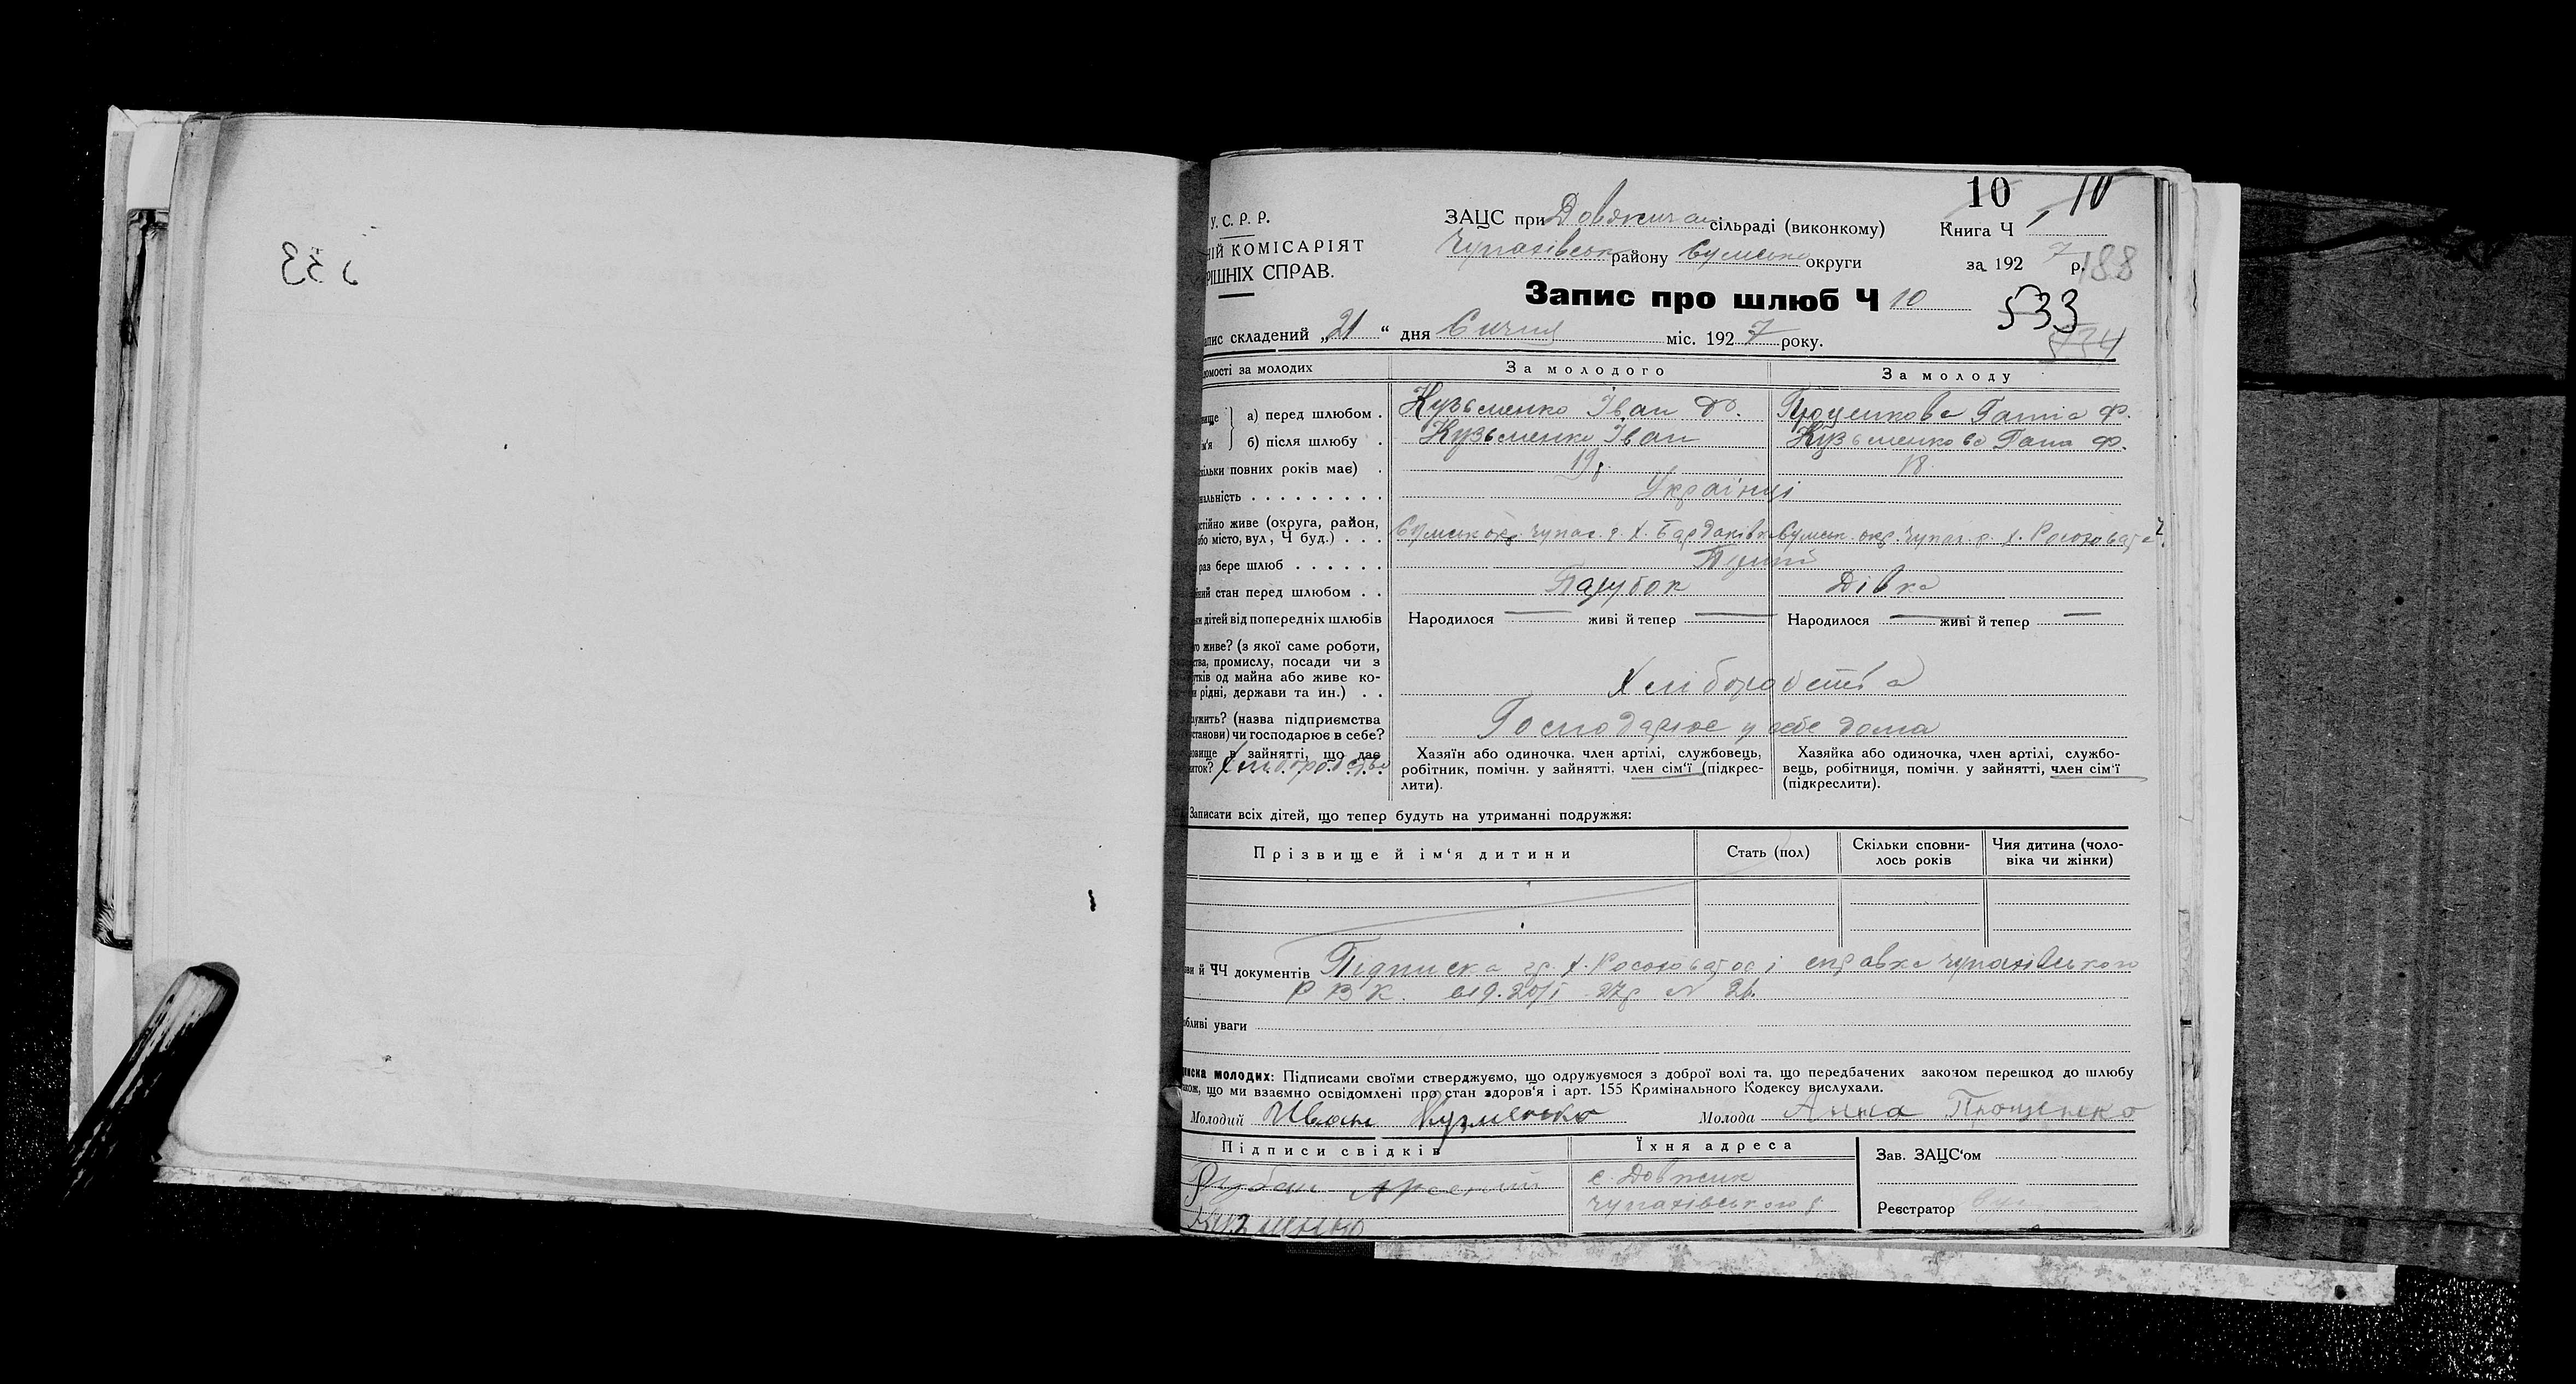 533
10 10
У. С. Р. Р.
ЗАЦС при Довжичан сільраді (виконкому)
Книга Ч 1
НІЙ КОМІСАРІЯТ
Чупахівськ району Сумськ округи
за 1927 р. 188
РІШНІХ СПРАВ.
Запис про шлюб Ч 10
533
534
апис складений „21“ дня Січня міс. 1927 року.
домості за молодих
За молодого
За молоду
вище а) перед шлюбом . Кузьменко Іван Ф. Проценкова Ганна Ф.
м'я б) після шлюбу . Кузьменко Іван Кузьменкова Гана Ф.
кільки повних років має) . 19 р. 18
нальність . . . . . . . . . Українці
остійно живе (округа, район,
або місто, вул, Ч буд.) . . . Сумськ окр. Чупах. р. х. Бардаківка Сумськ. окр. Чупах. р. х.
раз бере шлюб . . . . . .
йний стан перед шлюбом . . Парубок Дівка
ни дітей від попередніх шлюбів Народилося — живі й тепер — Народилося — живі й тепер —
го живе? (з якої саме роботи,
ства, промислу, посади чи з
утків од майна або живе ко-
и рідні, держави та ин.) . . Хліборобства
лужить? (назва підприємства
станови) чи господарює в себе? Господарює у себе дома
овище в зайнятті, що дає
иток? Хліборобство
Хазяїн або одиночка, член артілі, службовець,
робітник, помічн. у зайнятті, член сім'ї (підкрес-
лити).
Хазяйка або одиночка, член артілі, службо-
вець, робітниця, помічн. у зайнятті, член сім'ї
(підкреслити).
Записати всіх дітей, що тепер будуть на утриманні подружжя:
Прізвище й ім'я дитини
Стать (пол)
Скільки сповни-
лось років
Чия дитина (чоло-
віка чи жінки)
ви й ЧЧ документів Підписка гр. х. і справка Чупахівського
Р В К. від 20/I 27р N 26.
обливі уваги
писка молодих: Підписами своїми стверджуємо, що одружуємося з доброї волі та, що передбачених законом перешкод до шлюбу
акож, що ми взаємно освідомлені про стан здоров'я і арт. 155 Кримінального Кодексу вислухали.
Молодий Иван Кузменко Молода Анна Проценко
Підписи свідків
Їхня адреса
Зав. ЗАЦС'ом
Рубан Арсений
с. Довжик
Чупахівського р
Реєстратор
Кузменко